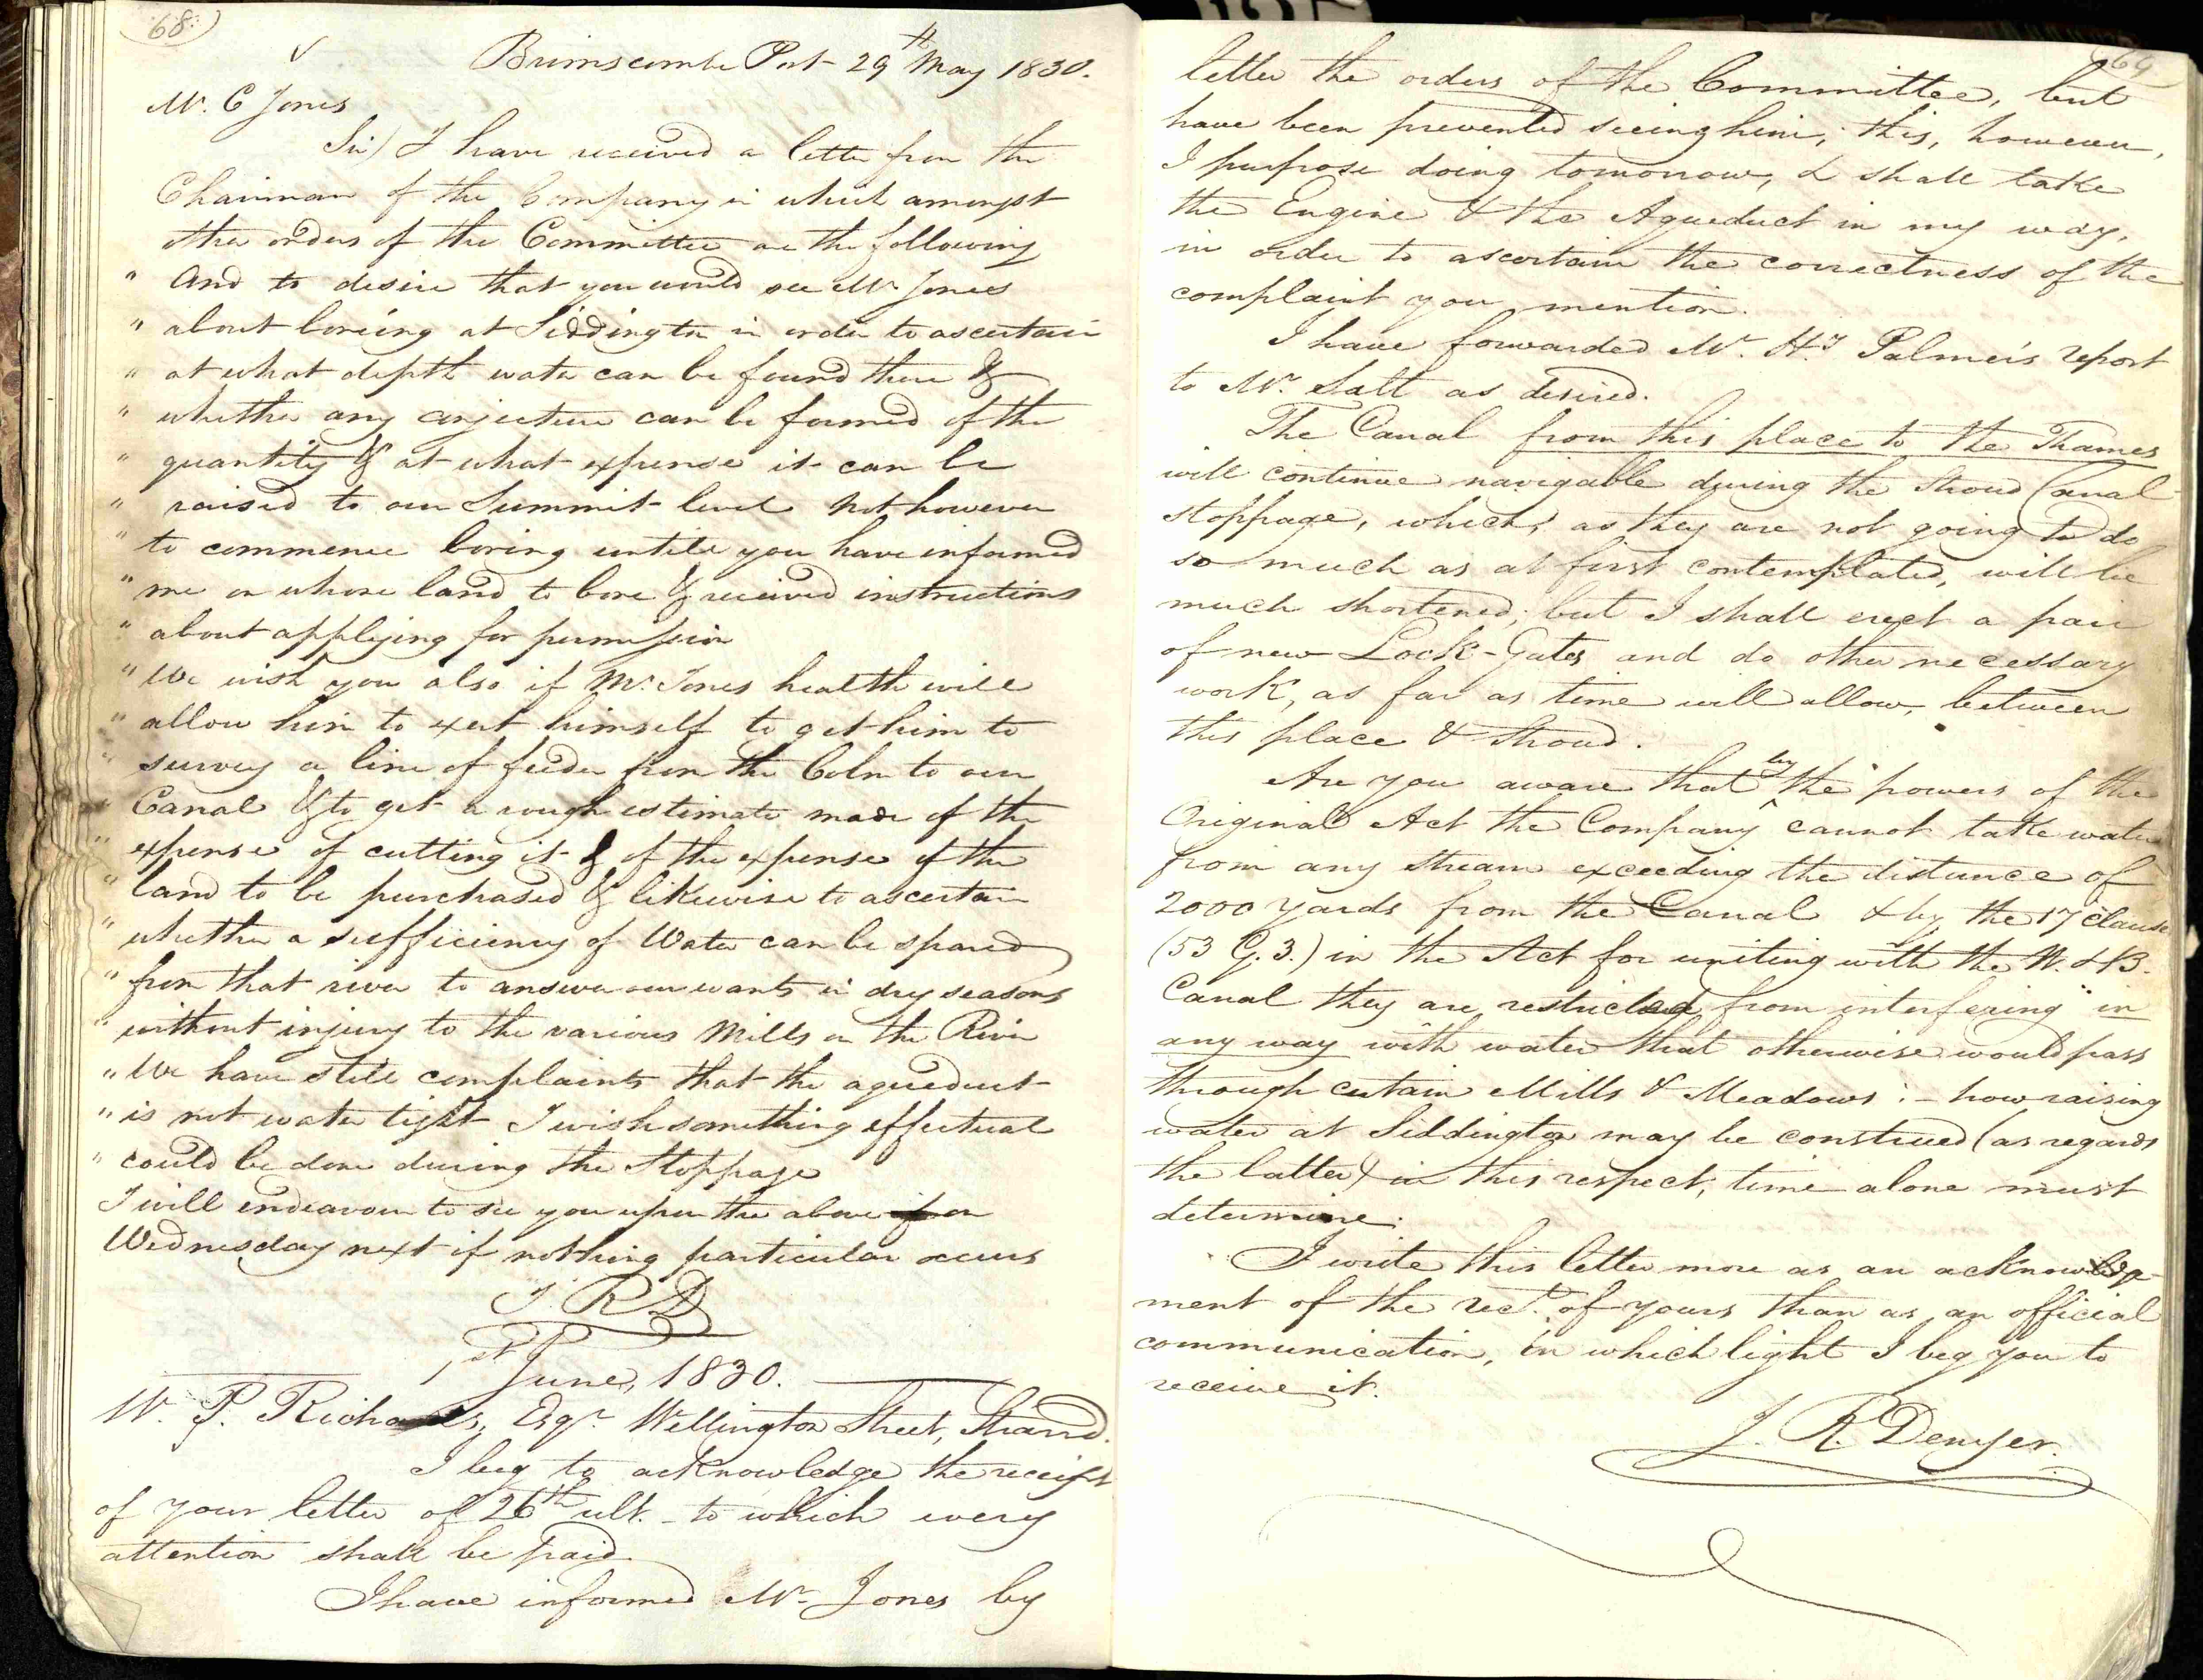 68
Brimscombe Port 29th May 1830.
Mr. C Jones
Sir) I have received a letter from the
Chairman of the Company in which amongst
other orders of the Committee are the following
" And to desire that you would see Mr Jones
" about boreing at Siddington in order to ascertain
" at what depth water can be found there &
" whether any conjecture can be formed of the
" quantity & at what expense it can be
" raised to our Summit level not however
" to commence boring untill you have informed
" me on whose land to bore & received instructions
" about applying for permission
" We wish you also if Mr. Jones health will
" allow him to exert himself to get him to
" survey a line of feeder from the Coln to our
" Canal & to get a rough estimate made of the
" expense of cutting it & of the expense of the
" land to be purchased & likewise to ascertain
" whether a sufficiency of Water can be spared
" from that river to answer our wants in dry seasons
" without injury to the various Mills on the River
" We have still complaints that the aqueduct
" is not water tight I wish something effectual
" could be done during the Stoppage
I will endeavour to see you upon the above if on
Wednesday next if nothing particular occurs
J. R D
1st June, 1830.
W. P. Richards, Esqr. Wellington Street, Strand.
I beg to acknowledge the receipt
of your letter of 26th ult. to which every
attention shall be paid.
I have informed Mr. Jones by
69
letter the orders of the Committee, but
have been prevented seeing him; this, however,
I purpose doing tomorrow, & shall take
the Engine & the Aqueduct in my way,
in order to ascertain the correctness of the
complaint you mention.
I have forwarded Mr. Hy Palmer's report
to Mr. Salt as desired.
The Canal from this place to the Thames
will continue navigable during the Stroud Canal
stoppage, which, as they are not going to do
so much as at first contemplated, will be
much shortened; but I shall erect a pair
of new Lock-Gates and do other necessary
work, as far as time will allow, between
this place & Stroud.
Are you aware that by the powers of the
Original Act the Company cannot take water
from any stream exceeding the distance of
2000 yards from the Canal & by the 17 clause
(53 G. 3.) in the Act for uniting with the W. & B.
Canal they are restricted from interfering "in
any way with water that otherwise would pass
through certain Mills & Meadows : - how raising
water at Siddington may be construed (as regards
the latter) in this respect, time alone must
determine.
I write this letter more as an acknowledge-
ment of the rect. of yours than as an official
communication, in which light I beg you to
receive it.
J. R. Denyer.